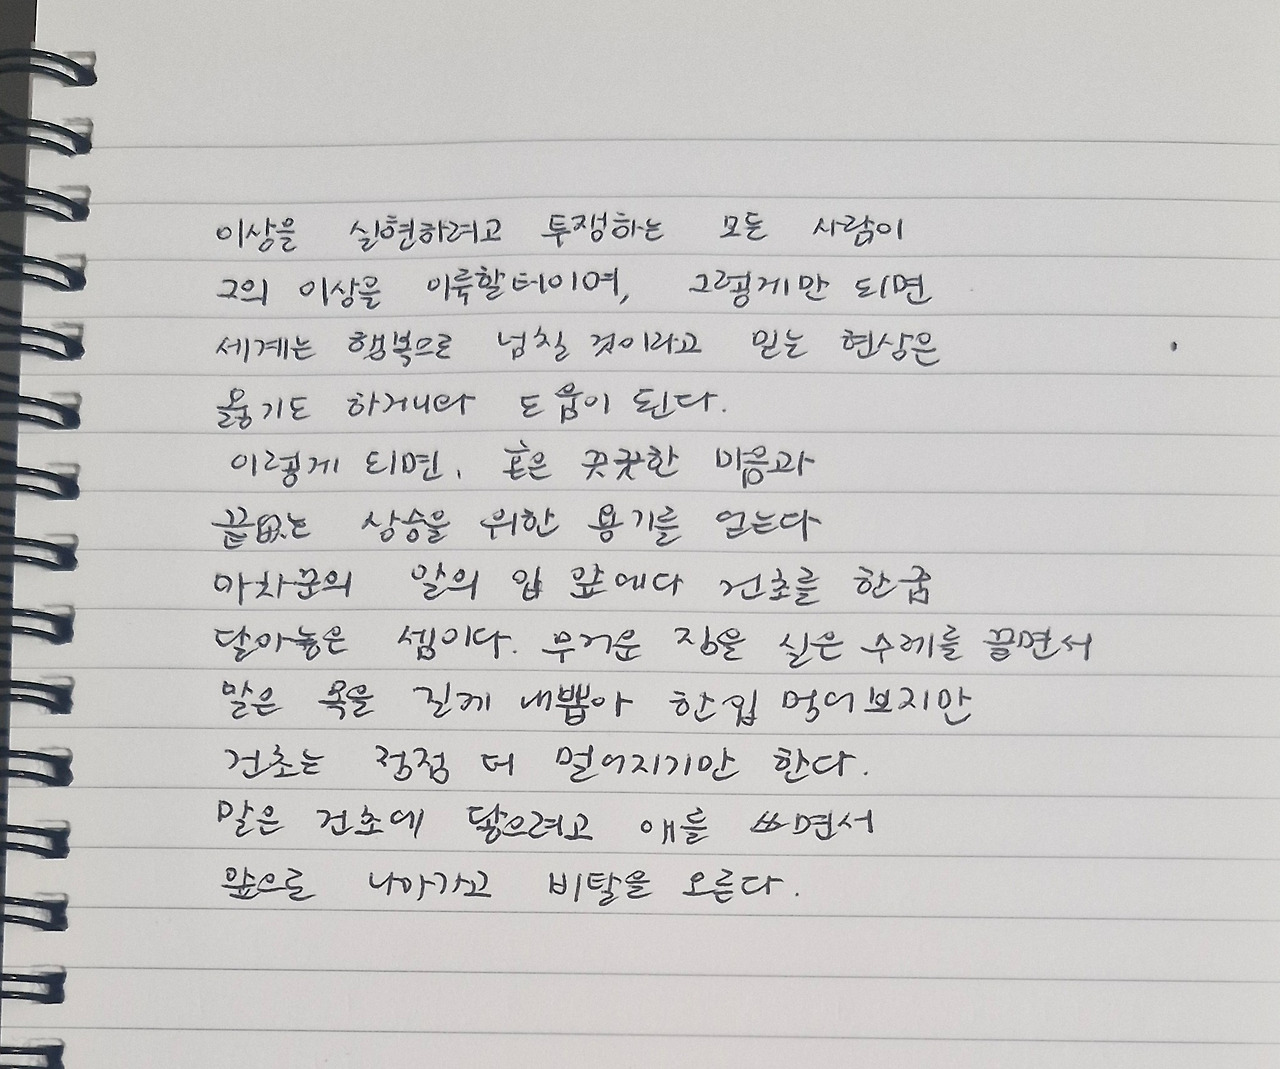 이상을 실현하려고 투쟁하는 모든 사람이
그의 이상을 이룩할터이며, 그렇게만 되면
세계는 행복으로 넘칠 것이라고 믿는 현상은
옳기도 하거니와 도움이 된다.
이렇게 되면, 혼은 꿋꿋한 마음과
끝없는 상승을 위한 용기를 얻는다
마차꾼의 말의 입 앞에다 건초를 한줌
달아놓은 셈이다. 무거운 짐을 실은 수레를 끌면서
말은 목을 길게 내뽑아 한입 먹어보지만
건초는 점점 더 멀어지기만 한다.
말은 건초에 닿으려고 애를 쓰면서
앞으로 나아가고 비탈을 오른다.